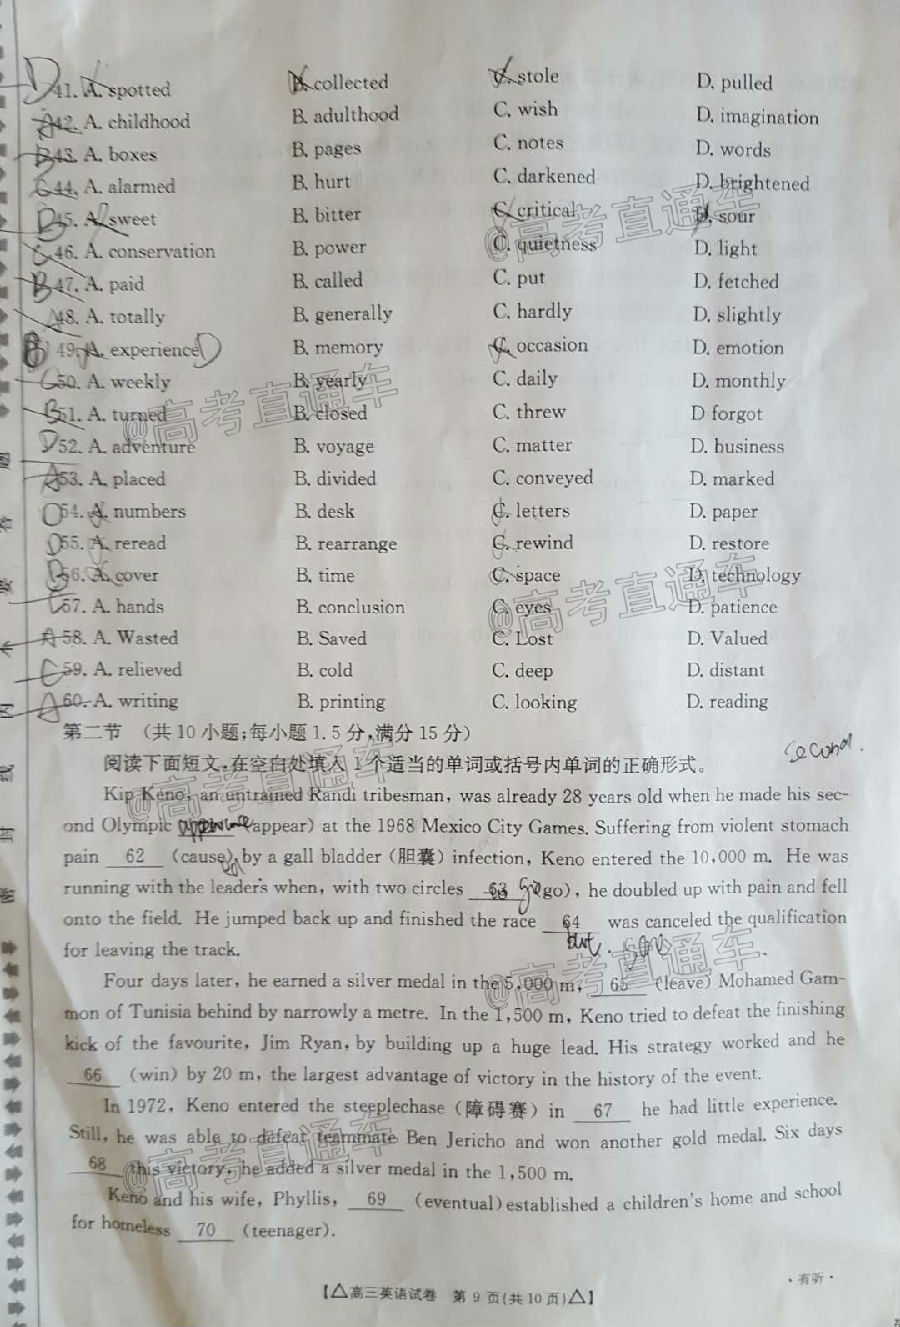 D 41. A. spotted B. collected C. stole D. pulled
A 42. A. childhood B. adulthood C. wish D. imagination
B 43. A. boxes B. pages C. notes D. words
C 44. A. alarmed B. hurt C. darkened D. brightened
D 45. A. sweet B. bitter C. critical D. sour
C 46. A. conservation B. power C. quietness D. light
B 47. A. paid B. called C. put D. fetched
48. A. totally B. generally C. hardly D. slightly
B 49. A. experience D B. memory C. occasion D. emotion
C 50. A. weekly B. yearly C. daily D. monthly
B 51. A. turned B. closed C. threw D forgot
D 52. A. adventure B. voyage C. matter D. business
A 53. A. placed B. divided C. conveyed D. marked
54. A. numbers B. desk C. letters D. paper
D 55. A. reread B. rearrange C. rewind D. restore
B 56. A. cover B. time C. space D. technology
C 57. A. hands B. conclusion C. eyes D. patience
A 58. A. Wasted B. Saved C. Lost D. Valued
C 59. A. relieved B. cold C. deep D. distant
A 60. A. writing B. printing C. looking D. reading
第二节 (共 10 小题;每小题 1. 5 分,满分 15 分)
second.
阅读下面短文,在空白处填入 1 个适当的单词或括号内单词的正确形式。
Kip Keno, an untrained Randi tribesman, was already 28 years old when he made his sec-
ond Olympic (appear) at the 1968 Mexico City Games. Suffering from violent stomach
pain 62 (cause) by a gall bladder (胆囊) infection, Keno entered the 10,000 m. He was
running with the leaders when, with two circles 63 (go), he doubled up with pain and fell
onto the field. He jumped back up and finished the race 64 was canceled the qualification
but.
for leaving the track.
Four days later, he earned a silver medal in the 5,000 m, 65 (leave) Mohamed Gam-
mon of Tunisia behind by narrowly a metre. In the 1,500 m, Keno tried to defeat the finishing
kick of the favourite, Jim Ryan, by building up a huge lead. His strategy worked and he
66 (win) by 20 m, the largest advantage of victory in the history of the event.
In 1972, Keno entered the steeplechase (障碍赛) in 67 he had little experience.
Still, he was able to defeat teammate Ben Jericho and won another gold medal. Six days
68 this victory, he added a silver medal in the 1,500 m.
Keno and his wife, Phyllis, 69 (eventual) established a children's home and school
for homeless 70 (teenager).
【△高三英语试卷 第 9 页(共 10 页)△】
·有听·
@高考直通车
@高考直通车
@高考直通车
@高考直通车
@高考直通车
@高考直通车
@高考直通车